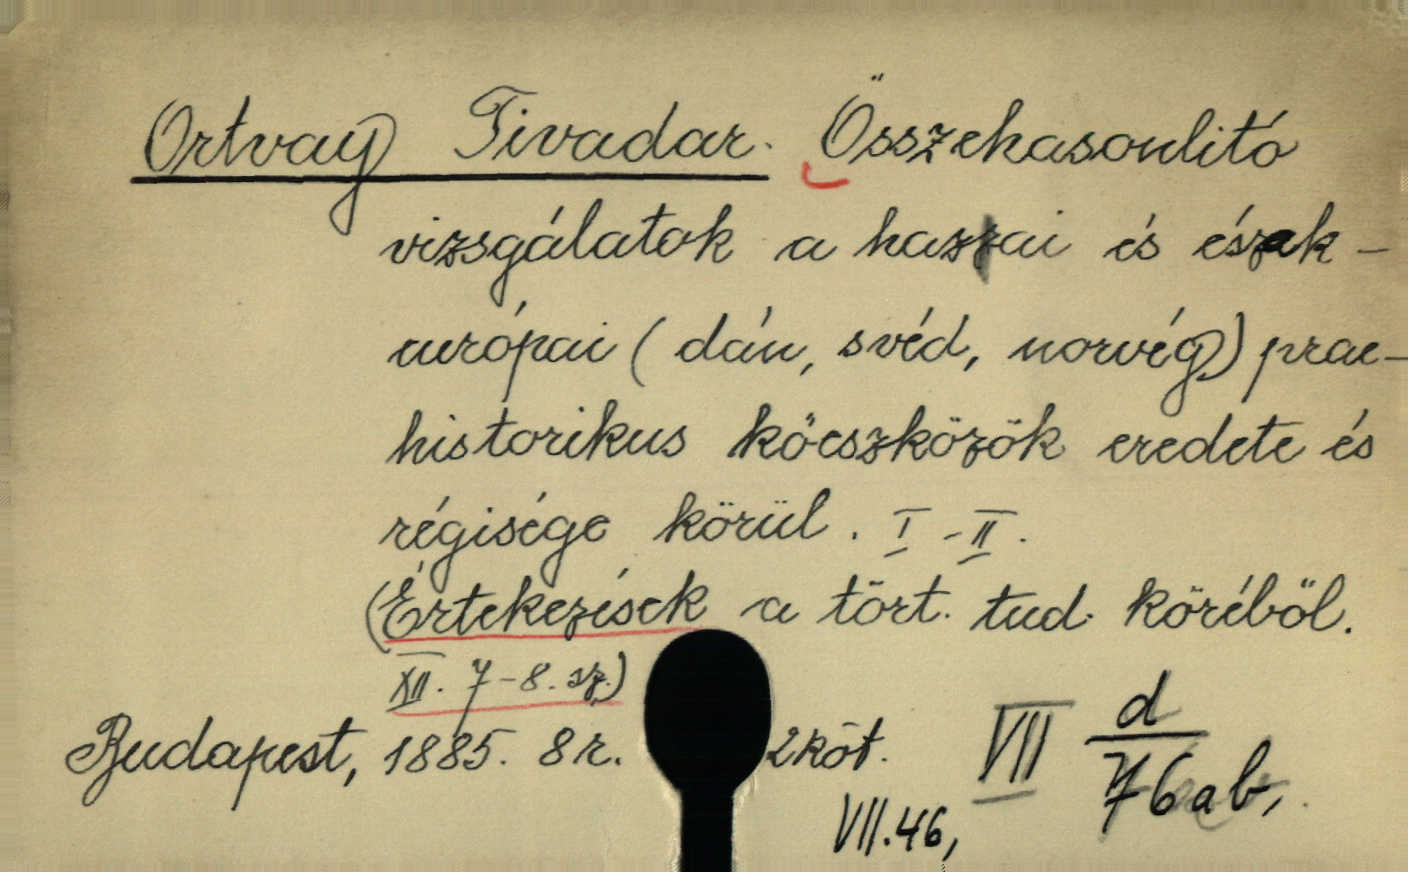 Ortvay Tivadar. Összehasonlitó
vizsgálatok a hazai és észak-
európai (dán, svéd, norvég) prae-
historikus kőeszközök eredete és
régisége körül. I-II.
(Értekezések a tört. tud. köréből.
XII. 7-8. sz.)
Budapest, 1885. 8r. 2köt.
VII d/76ab,
VII.46,